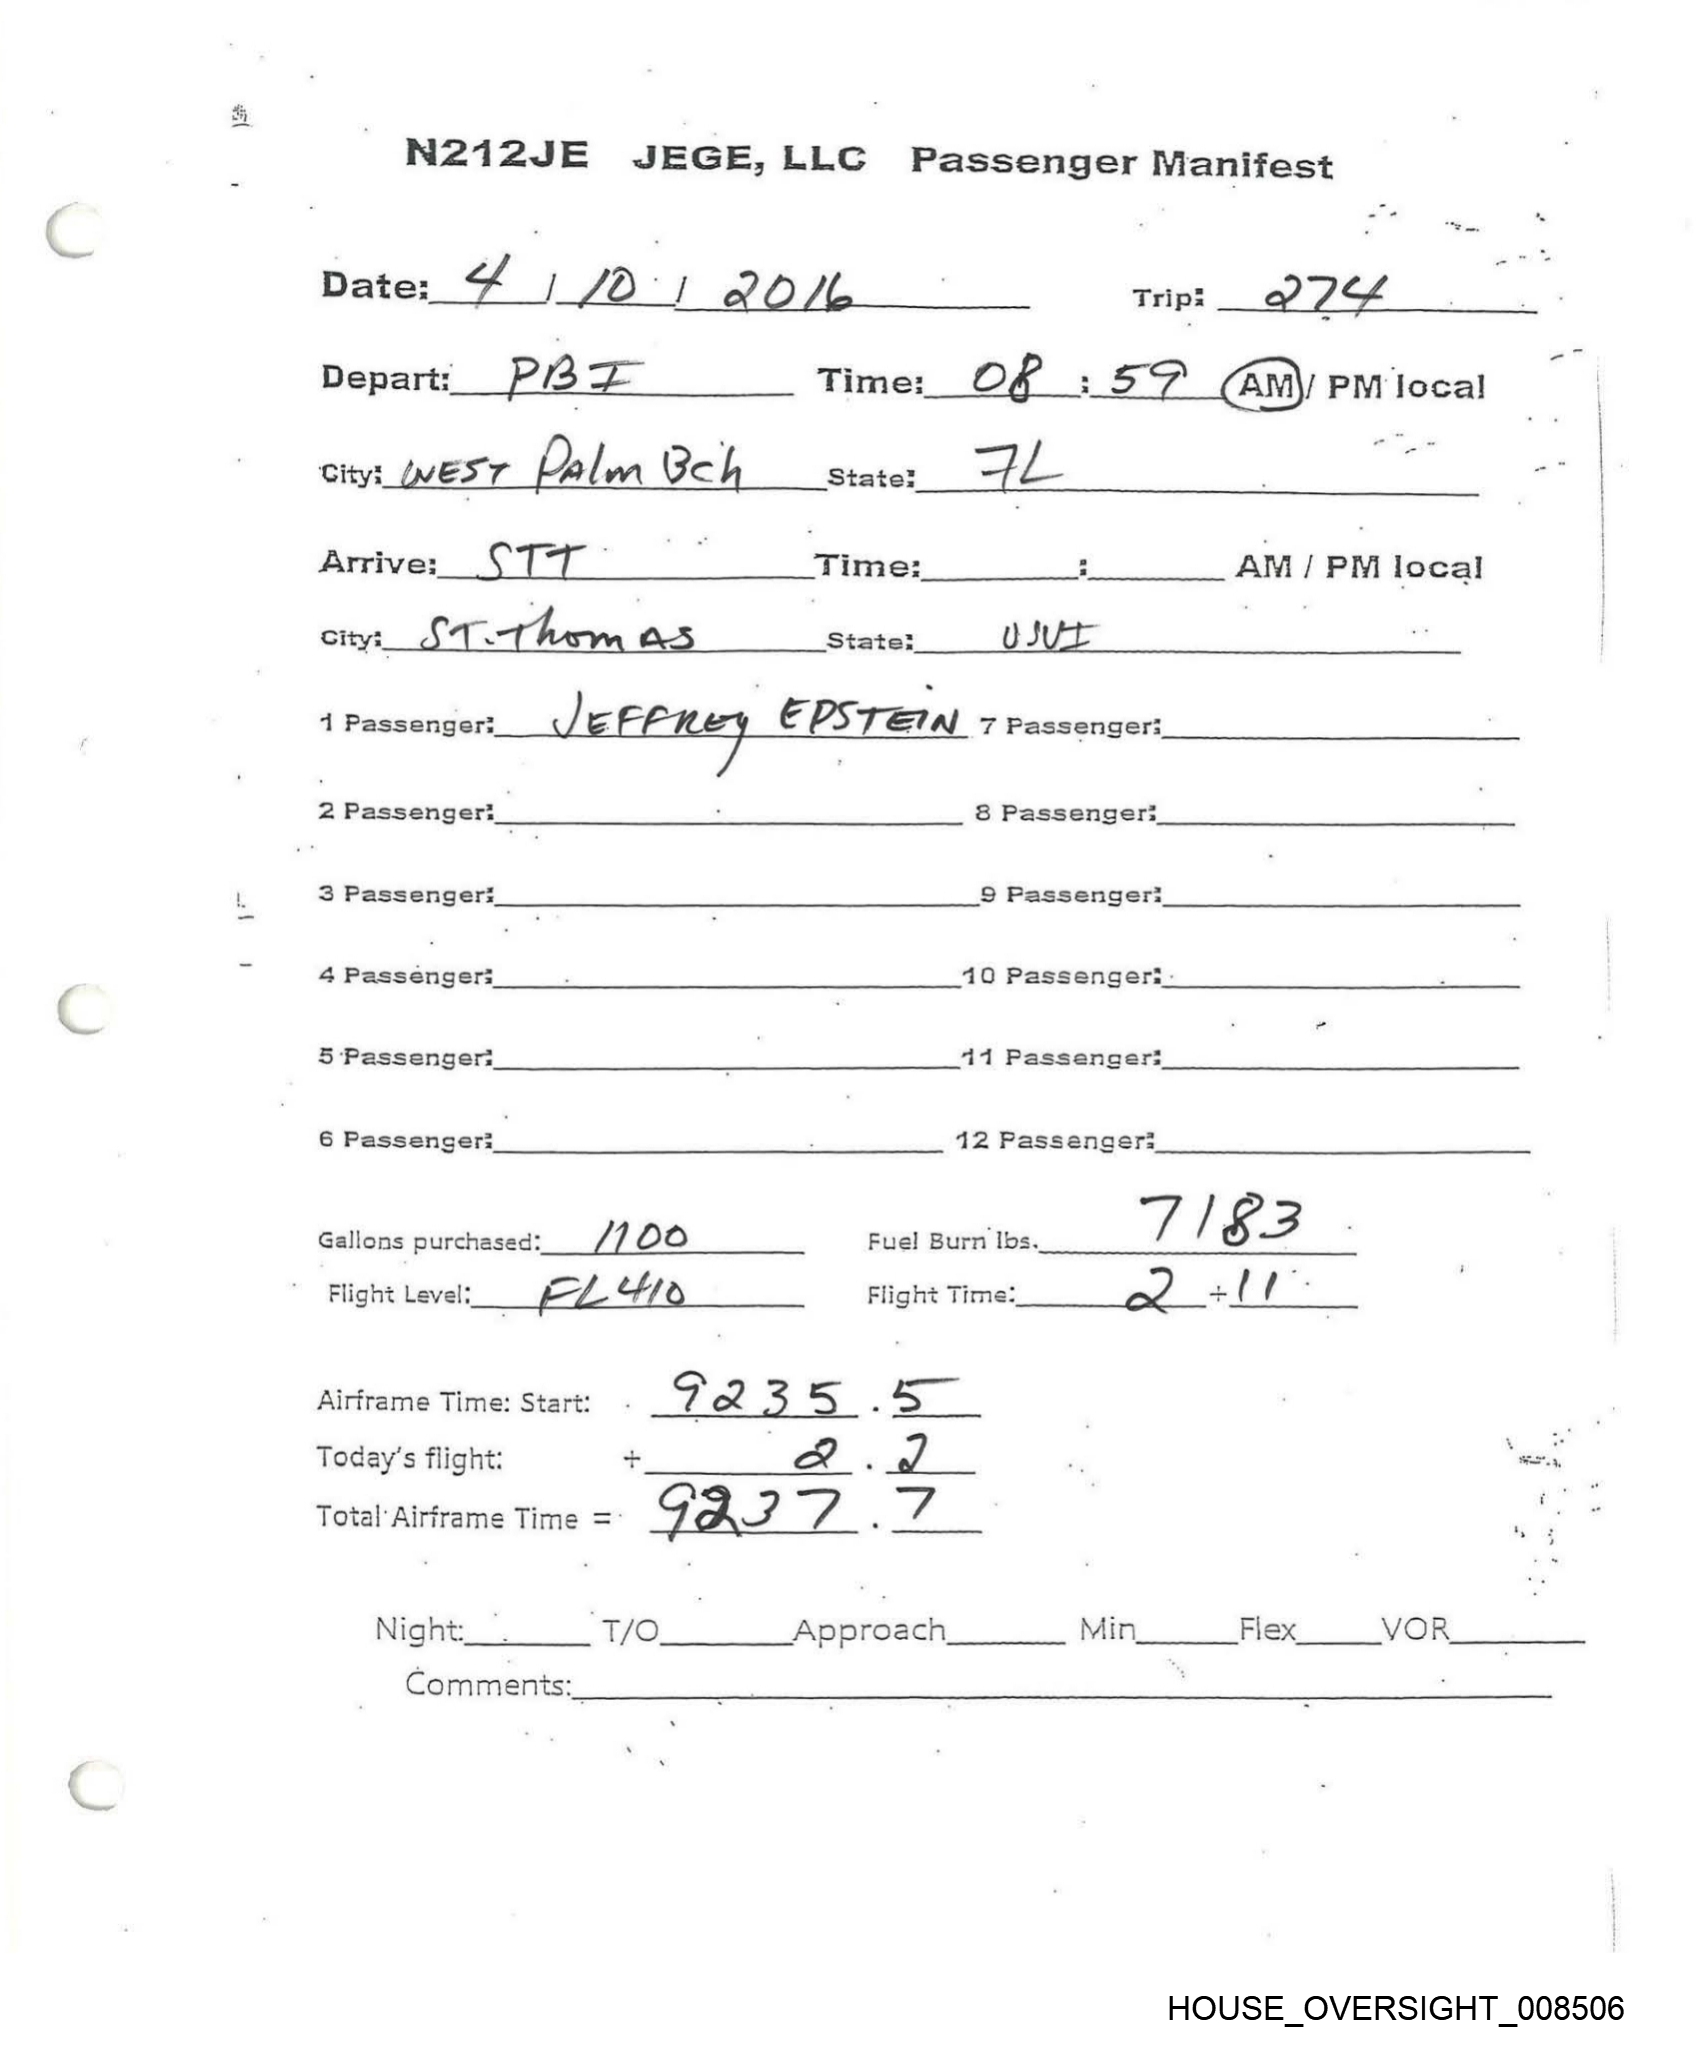 N212JE JEGE, LLC Passenger Manifest
Date: 4 / 10 / 2016 Trip: 274
Depart: PBI Time: 08 : 59 AM / PM local
City: WEST Palm Bch State: FL
Arrive: STT Time: : AM / PM local
City: ST. Thomas State: USVI
1 Passenger: JEFFREY EPSTEIN 7 Passenger:
2 Passenger: 8 Passenger:
3 Passenger: 9 Passenger:
4 Passenger: 10 Passenger:
5 Passenger: 11 Passenger:
6 Passenger: 12 Passenger:
Gallons purchased: 1100 Fuel Burn lbs. 7183
Flight Level: FL410 Flight Time: 2 + 11
Airframe Time: Start: 9235 . 5
Today's flight: + 2 . 2
Total Airframe Time = 9237 . 7
Night: T/O Approach Min Flex VOR
Comments:
HOUSE_OVERSIGHT_008506